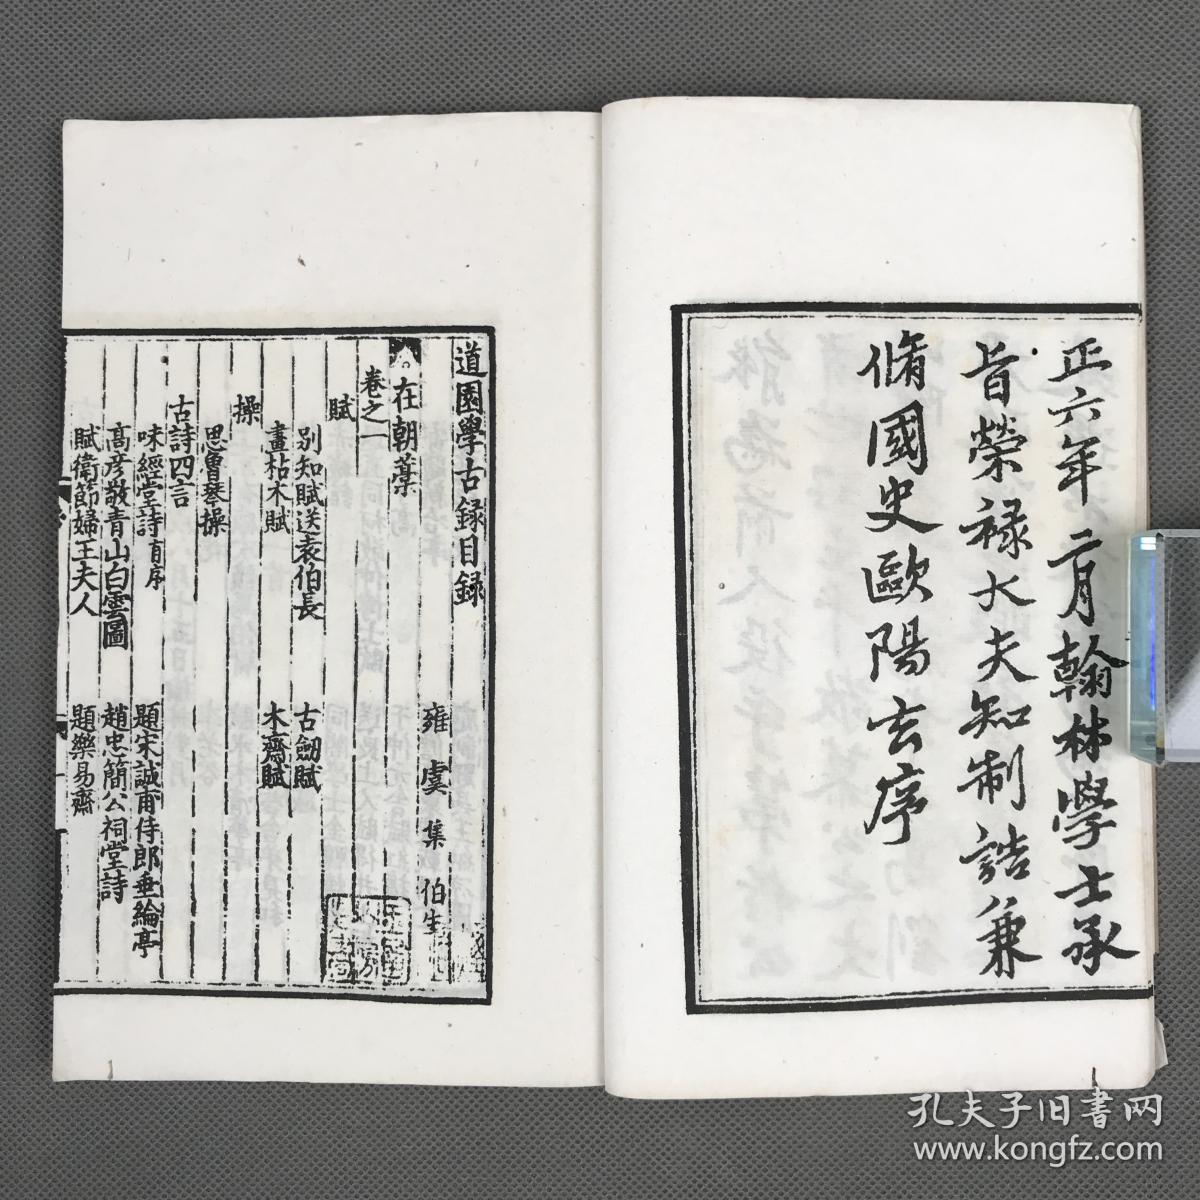 正六年二月翰林學士承
旨榮祿大夫知制誥兼
脩國史歐陽玄序
道園學古錄目錄
雍虞集伯生
在朝藁
卷之一
賦
別知賦送袁伯長 古劒賦
畫枯木賦 木齋賦
操
思魯琴操
古詩四言
味經堂詩有序 題宋誠甫侍郎垂綸亭
高彥敬青山白雲圖 趙忠簡公祠堂詩
賦衛節婦王夫人 題樂易齋
孔夫子旧书网
www.kongfz.com